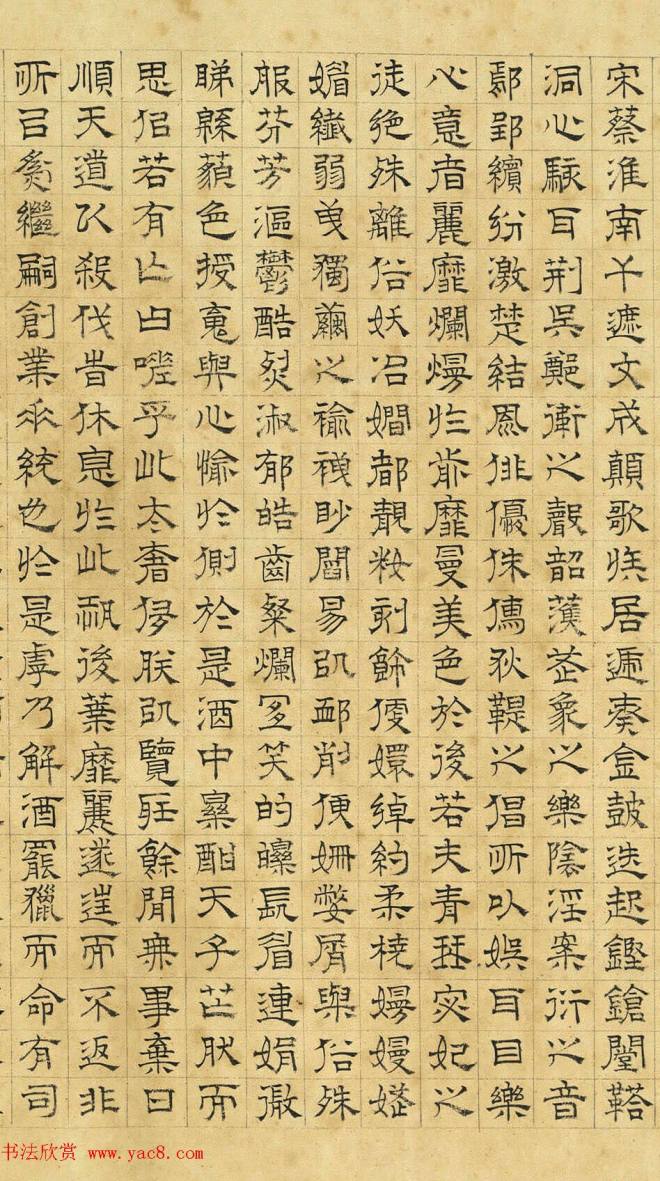 宋蔡淮南干遮文成顛歌族居遞奏金鼓迭起鏗鎗闛鞈
洞心駭耳荊吳鄭衛之聲韶濩武象之樂陰淫案衍之音
鄢郢繽紛激楚結風俳優侏儒狄鞮之倡所以娛耳目樂
心意者麗靡爛熳於前靡曼美色於後若夫青琴宓妃之
徒絕殊離俗妖冶嫺都靚粧刻飾便嬛綽約柔橈嫚嫚嫵
媚纖弱曳獨繭之褕袣眇閻易以卹削便姍嫳屑與俗殊
服芬芳漚鬱酷烈淑郁皓齒粲爛宜笑的皪長眉連娟微
睇緜藐色授魂與心愉於側於是酒中樂酣天子芒然而
思侶若有亡曰嗟乎此太奢侈朕以覽聽餘閒無事棄日
順天道以殺伐時休息於此恐後葉靡麗遂往而不返非
所以為繼嗣創業垂統也於是虖乃解酒罷獵而命有司
书法欣赏 www.yac8.com